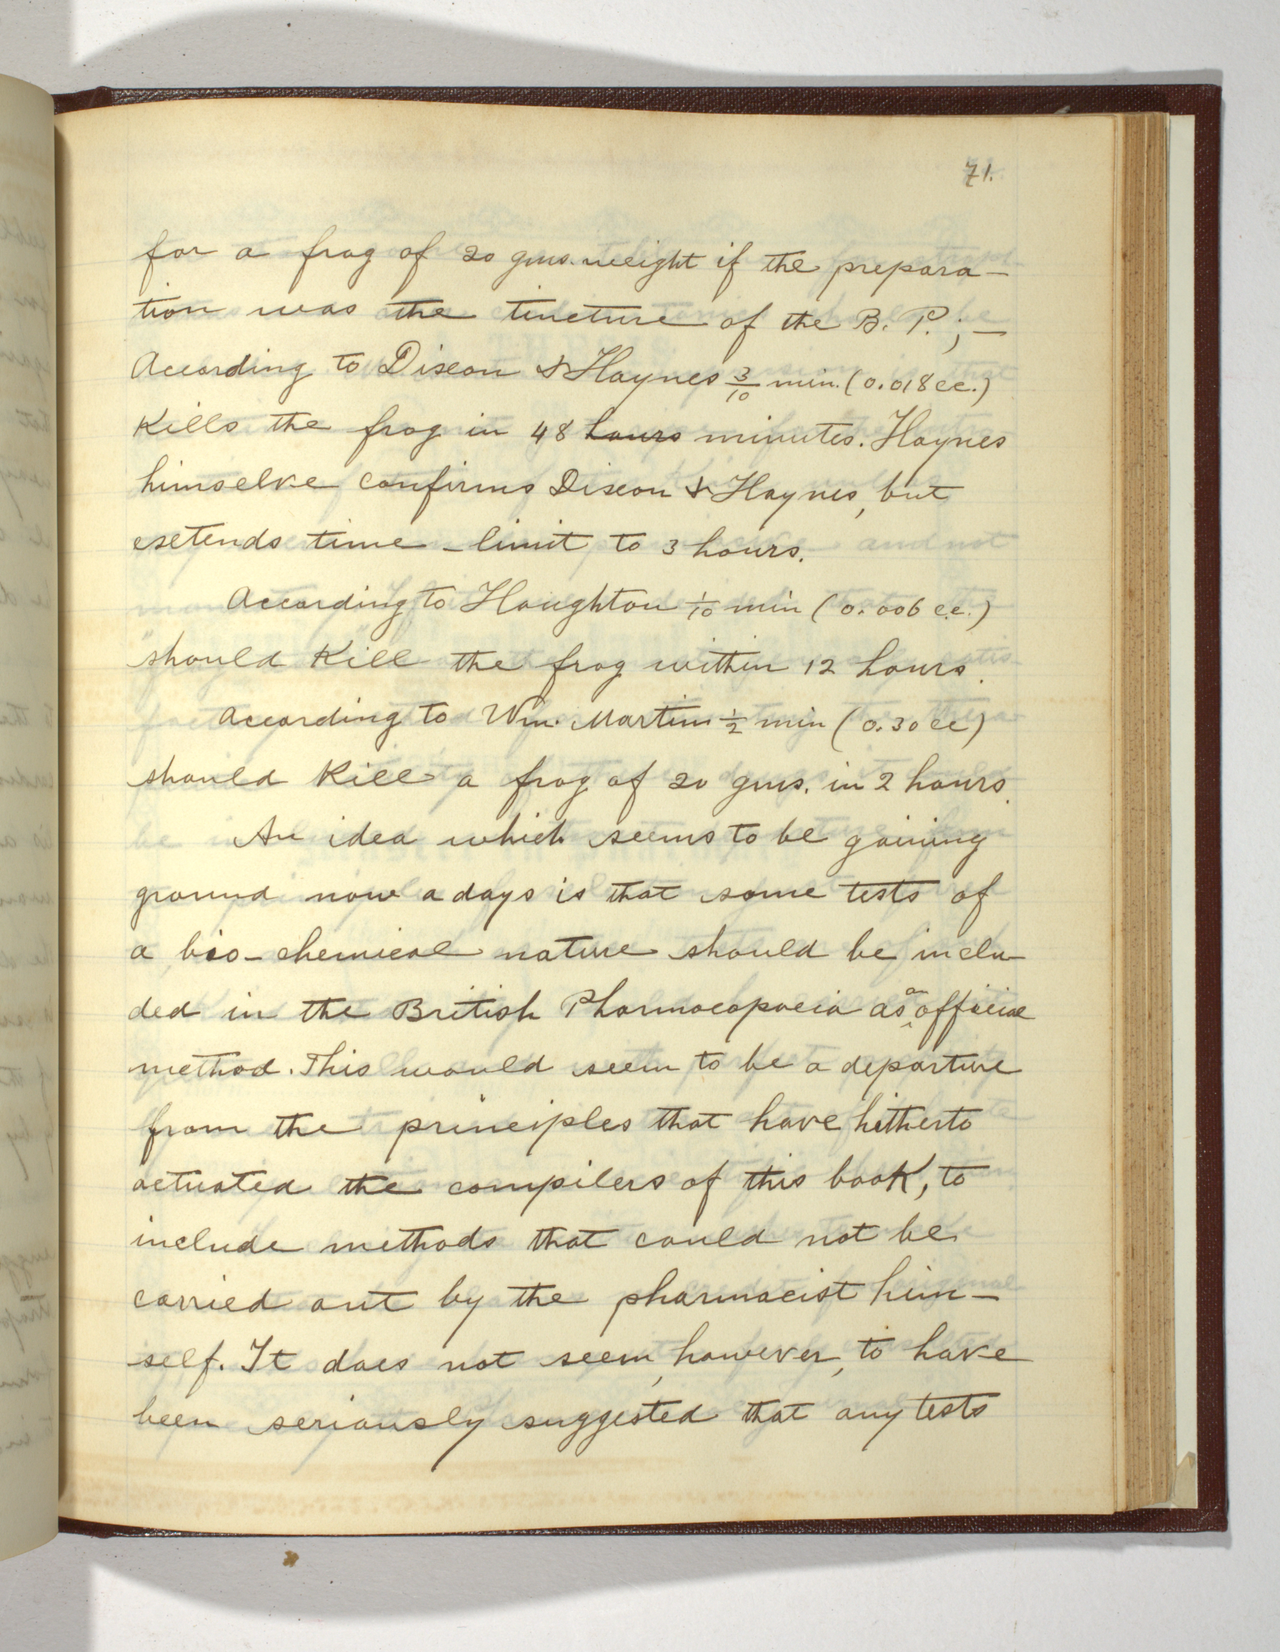 71.
for a frog of 20 gms. weight if the prepara-
tion was the tincture of the B. P.;—
According to Dixon & Haynes 3/10 min. (0.018 cc.)
Kills the frog in 48 hours minutes. Haynes
himselve confirms Dixon & Haynes, but
extends time-limit to 3 hours.
According to Houghton 1/10 min (0.006 c.c.)
should Kill the frog within 12 hours.
According to Wm. Martin 1/2 min (0.30 cc)
should Kill a frog of 20 gms. in 2 hours.
An idea which seems to be gaining
ground now a days is that some tests of
a bio-chemical nature should be inclu-
ded in the British Pharmocopoeia as a official
method. This would seem to be a departure
from the principles that have hitherto
actuated the compilers of this book, to
include methods that could not be
carried out by the pharmacist him-
self. It does not seem, however, to have
been seriously suggested that any tests